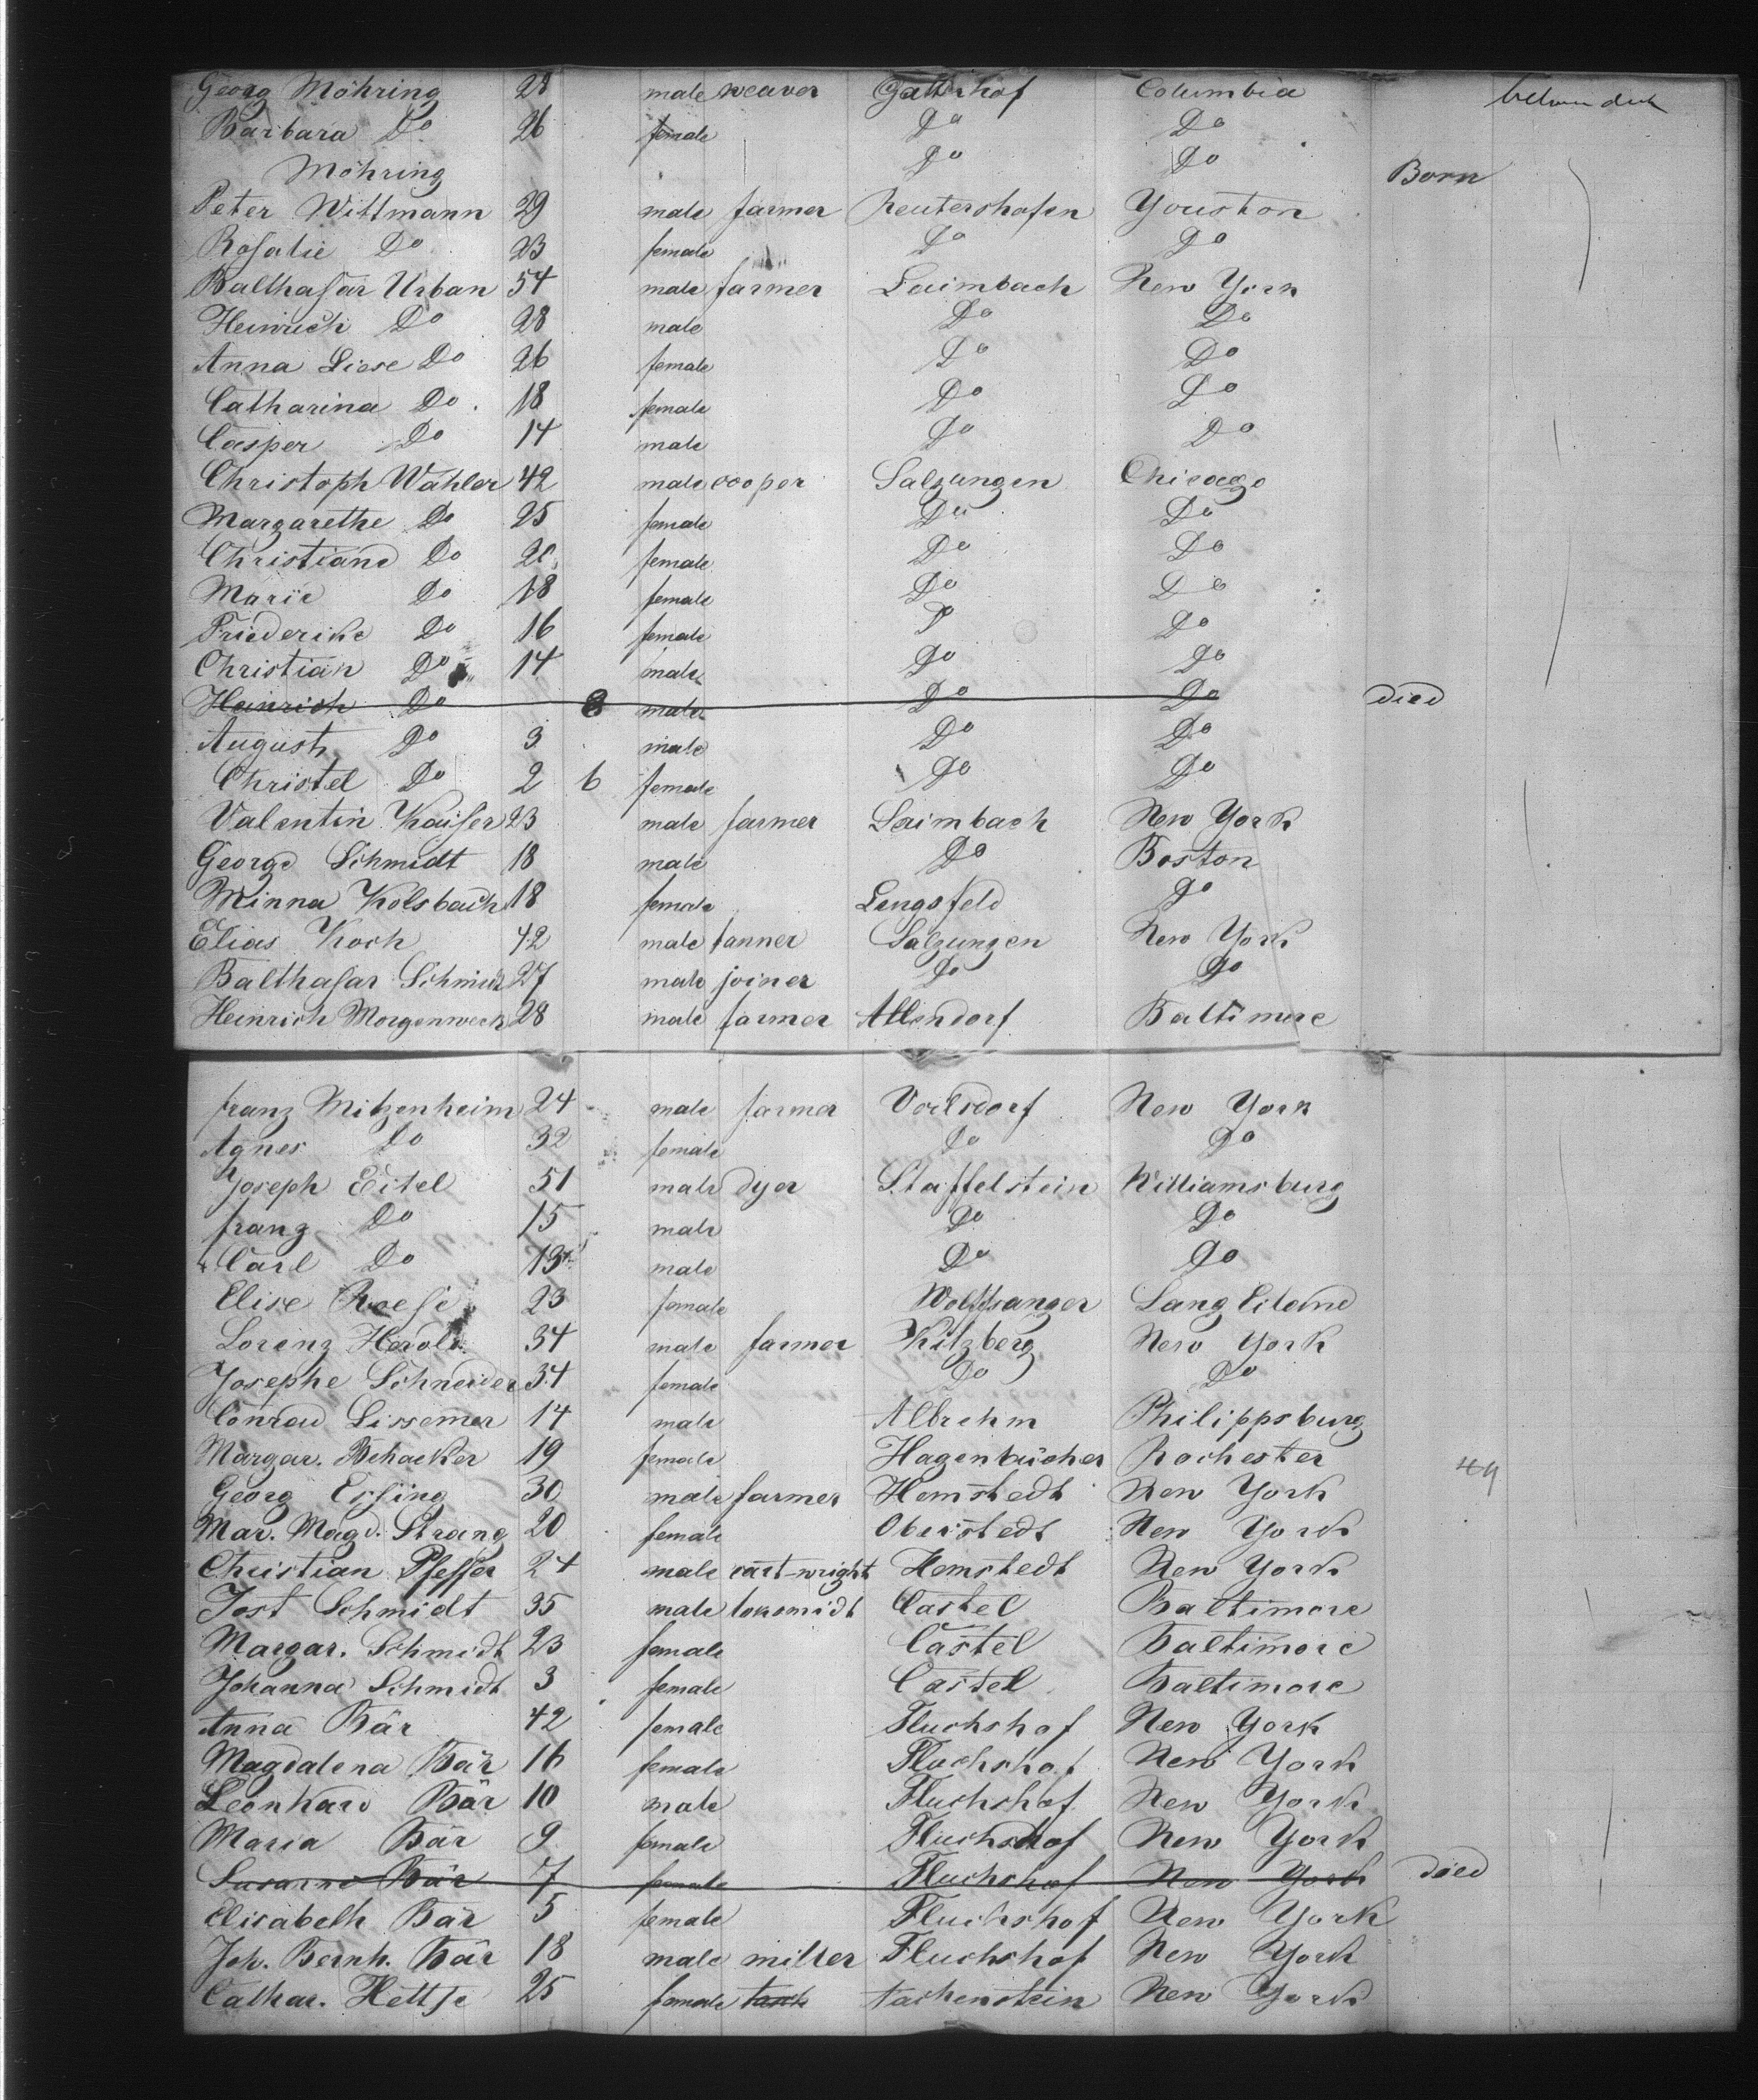 Georg Möhring 28 male weaver Columbia
Barbara Do 26 female Do Do
Möhring Do Do Born
Peter Wittmann 29 male farmer Reutershofen Youston
Rosalie Do 23 female Do Do
Balthasar Urban 54 male farmer Laimbach New York
Heinrich Do 28 male Do Do
Anna Liese Do 26 female Do Do
Catharina Do 18 female Do Do
Casper Do 14 male Do Do
Christoph Wähler 42 male cooper Salzungen Chicago
Margarethe Do 25 female Do Do
Christiane Do 20 female Do Do
Marie Do 18 female Do Do
Friederike Do 16 female D Do
Christian Do 14 male Do Do
Heinrich Do 8 male Do Do died
August Do 3 male Do Do
Christel Do 2 6 female Do Do
Valentin Kaiser 23 male farmer Laimbach New York
George Schmidt 18 male Do Boston
Minna Kolsbach 18 female Lengsfeld Do
Elias Koch 42 male tanner Salzungen New York
Balthasar Schmidt 27 male joiner Do Do
Heinrich Morgenweck 28 male farmer Allendorf Baltimore
franz Mitzenheim 24 male farmer New York
Agnes Do 32 female Do Do
Joseph Eitel 51 male dyer Staffelstein Williamsburg
franz Do 15 male Do Do
Carl Do 13 male Do Do
Elise 23 female Wolfsanger Lang Eiland
Lorenz Herold 34 male farmer Kitzberg New York
Josephe Schneider 34 female Do Do
Conrad Lissemer 14 male Albrehm Philippsburg
Margar. Schacker 19 female Hagenbücher Rochester 49
Georg Essing 30 male farmer Hemstedt New York
Mar. Magd. Strang 20 female Oberstedt New York
Christian Pfeffer 24 male cart-wright Hemstedt New York
Jost Schmidt 35 male loksmidt Castel Baltimore
Margar. Schmidt 23 female Castel Baltimore
Johanna Schmidt 3 female Castel Baltimore
Anna Bär 42 female Fluchshof New York
Magdalena Bär 16 female Fluchshof New York
Leonhard Bär 10 male Fluchshof New York
Maria Bär 9 female Fluchshof New York
Susanne Bär 7 female Fluchshof New York died
Elisabeth Bär 5 female Fluchshof New York
Joh. Bernh. Bär 18 male miller Fluchshof New York
Cathar. Hettse 25 female tach tachenstein New York